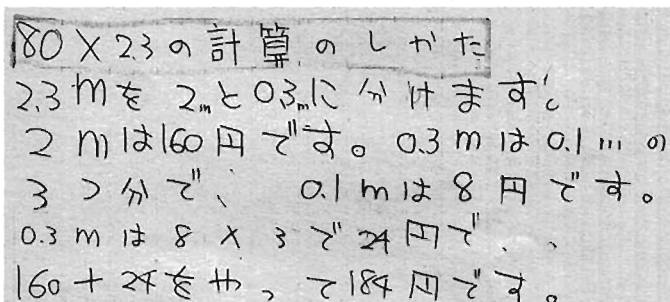 80×2.3の計算のしかた
2.3mを2mと0.3mに分けます。
2mは160円です。0.3mは0.1mの
3つ分で、0.1mは8円です。
0.3mは8×3で24円で、、
160+24をやって184円です。